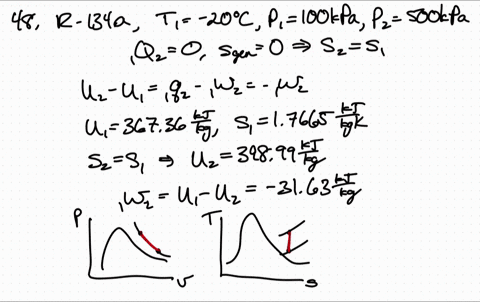 48. R-134a, T₁=-20°C, P₁=100kPa, P₂=500kPa
₁Q₂=0, sgen=0 ⇒ S₂=S₁
U₂-U₁=₁q₂-₁w₂=-₁w₂
U₁=367.36 kJ/kg, S₁=1.7665 kJ/kgK
S₂=S₁ ⇒ U₂=398.99 kJ/kg
₁w₂=U₁-U₂=-31.63 kJ/kg
P T
v s